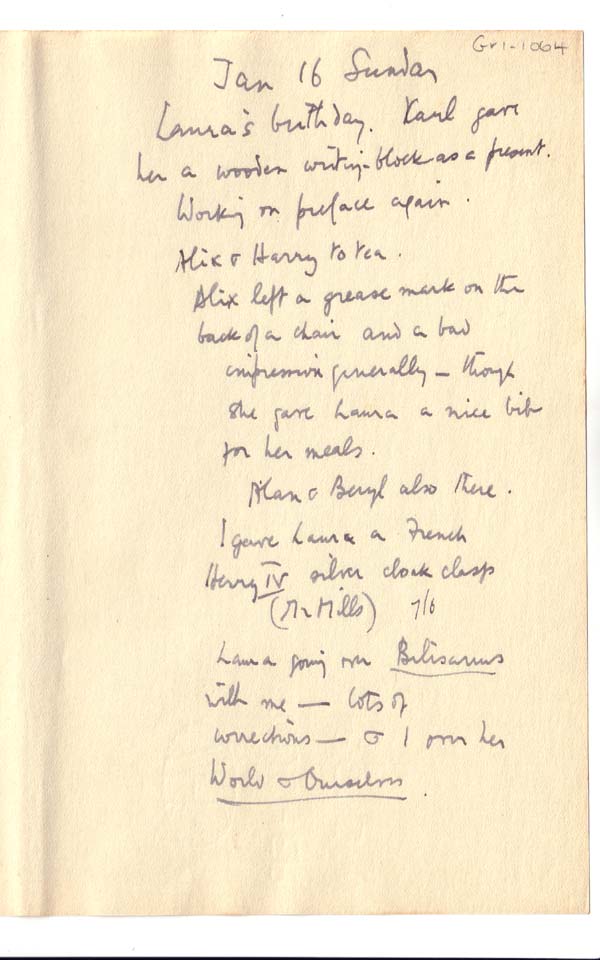 Gr1-1064
Jan 16 Sunday
Laura's birthday. Karl gave
her a wooden writing-block as a present.
Working on preface again.
Alix & Harry to tea.
Alix left a grease mark on the
back of a chair and a bad
impression generally – though
she gave Laura a nice bib
for her meals.
Alan & Beryl also there.
I gave Laura a French
Henry IV silver cloak clasp
(Mr Mills) 7/6
Laura going over Belisarius
with me — lots of
corrections — & I over her
World & Ourselves.